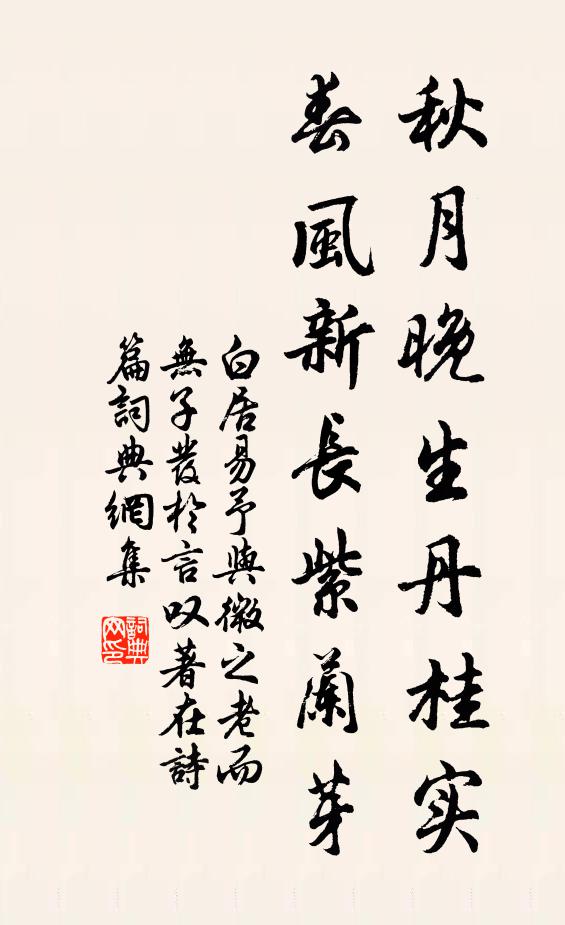 秋月晚生丹桂实
春風新長紫蘭芽
白居易予與微之老而
無子發於言叹著在詩
篇詞典網集
詞典
网印